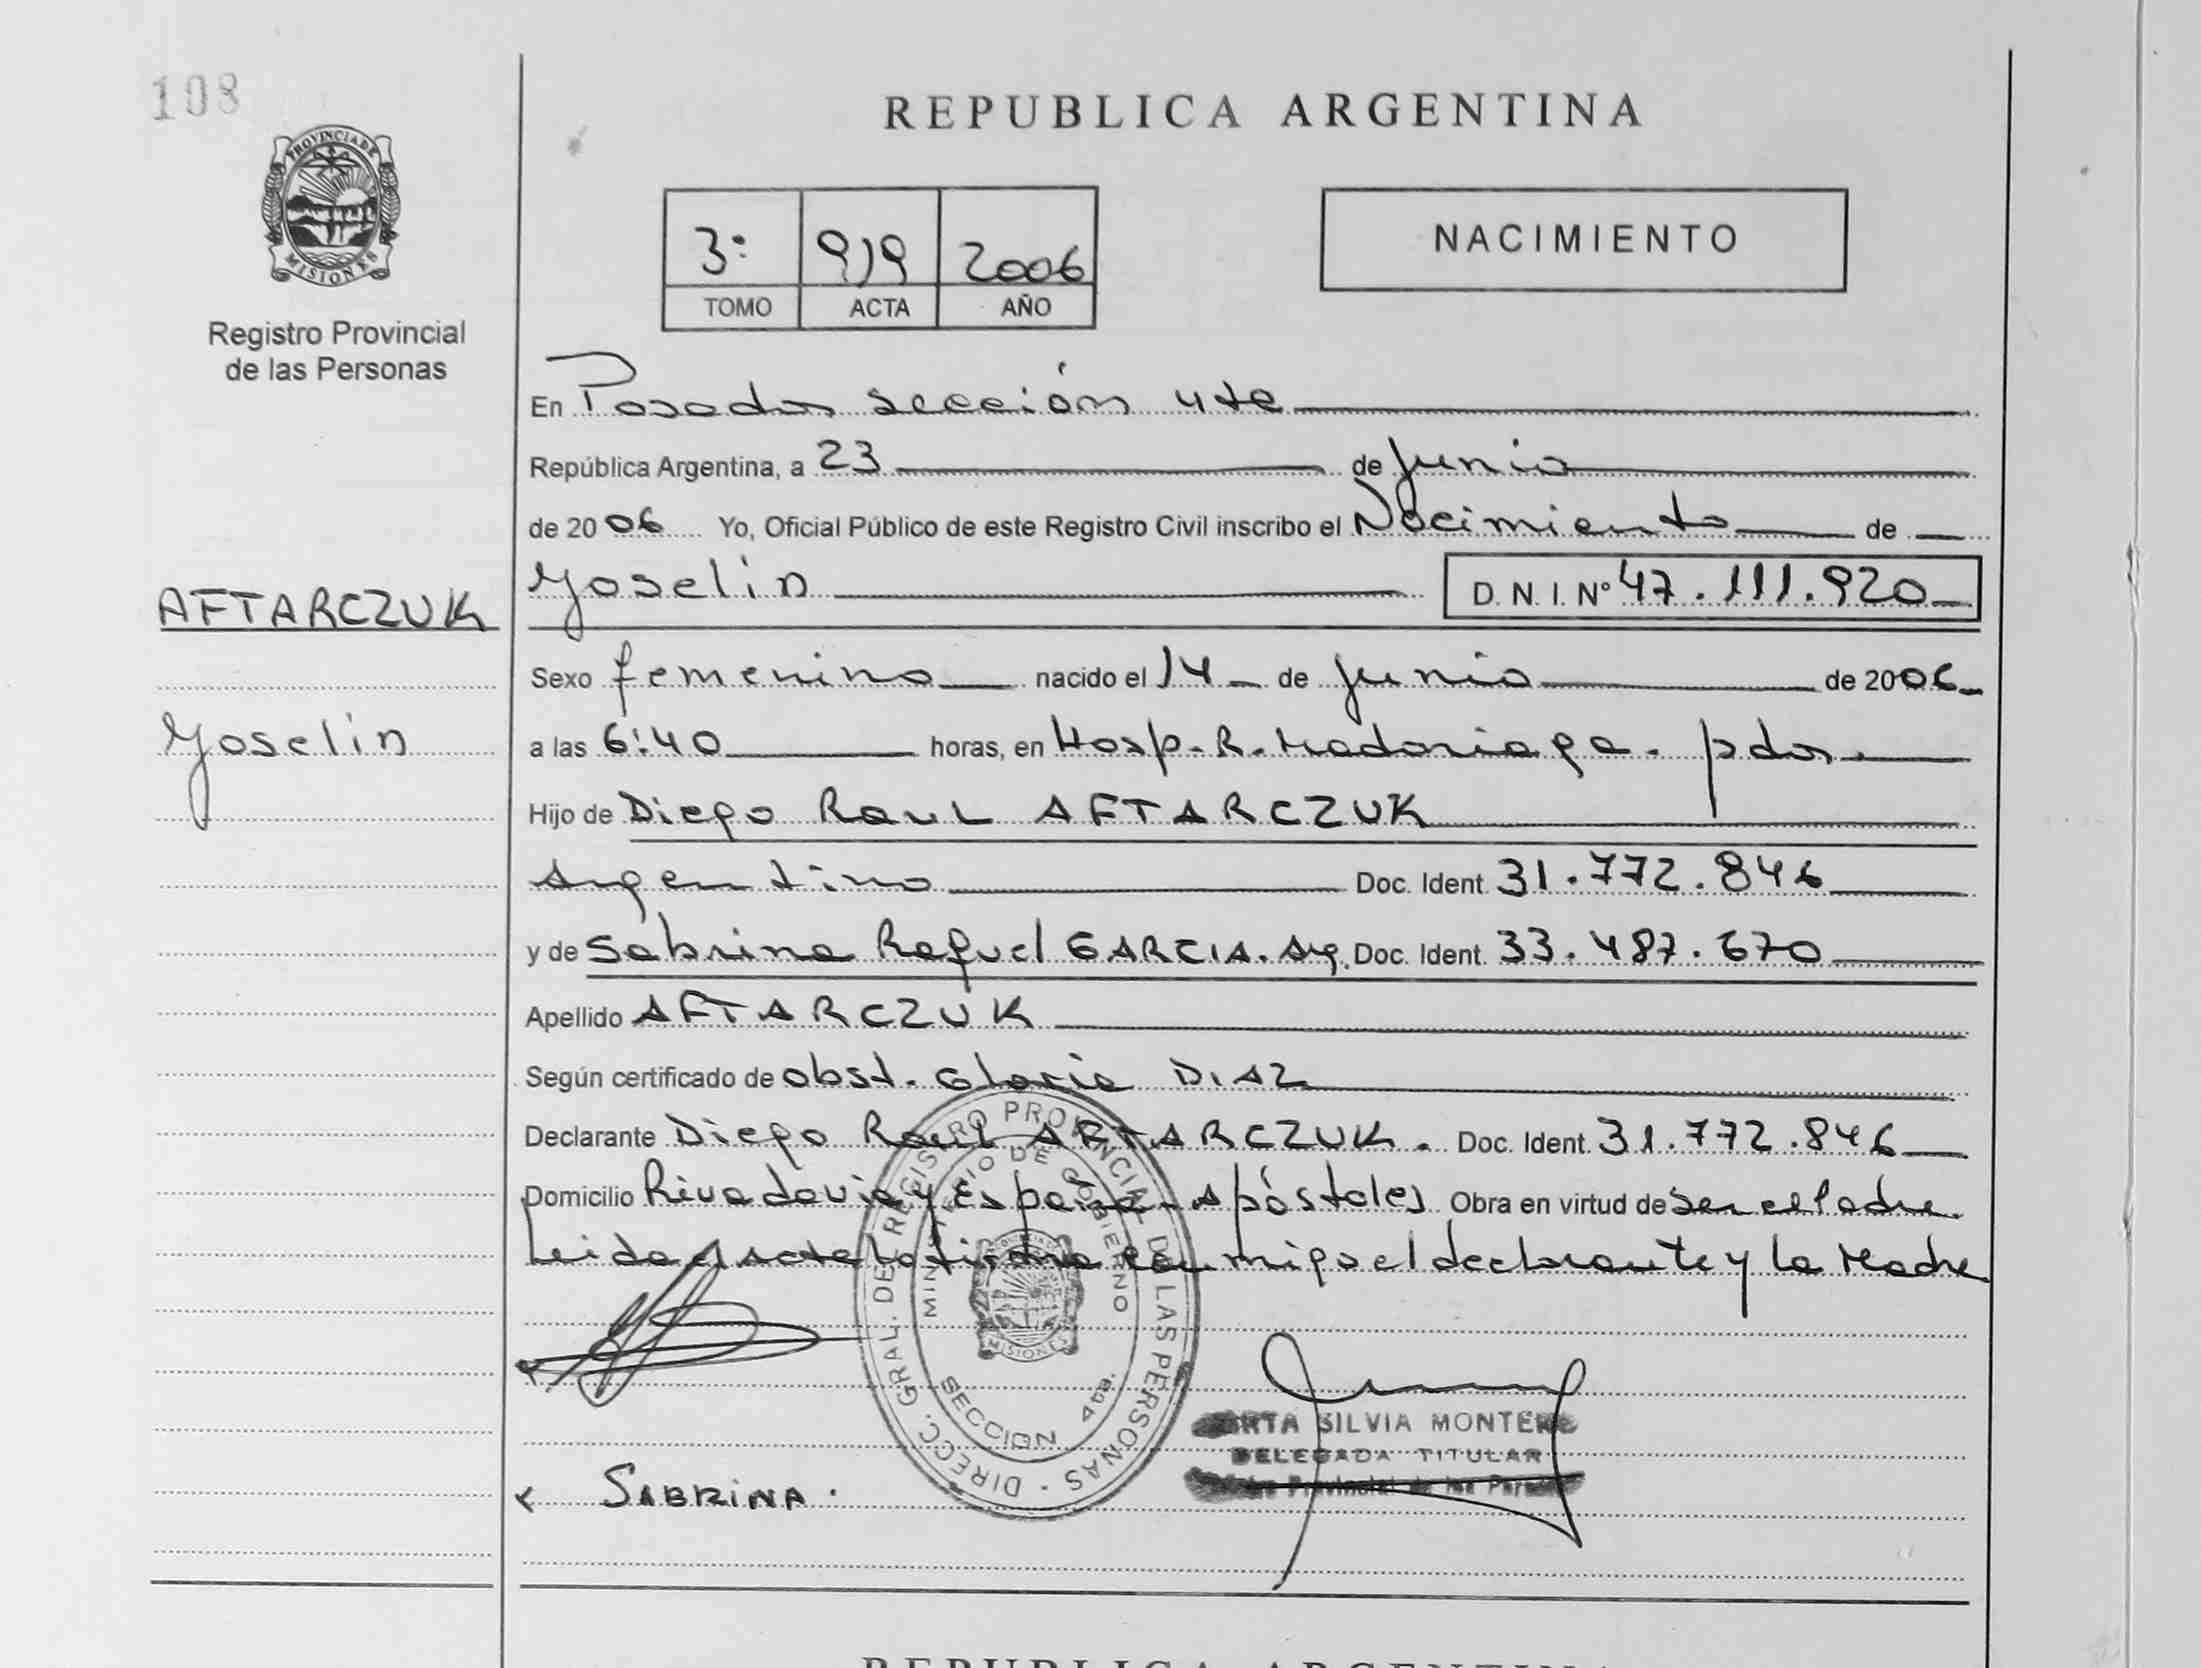 108
REPUBLICA ARGENTINA
PROVINCIA DE
MISIONES
Registro Provincial
de las Personas
3: 919 2006
TOMO ACTA AÑO
NACIMIENTO
En Posadas sección 4te
República Argentina, a 23 de Junio
de 2006 Yo, Oficial Público de este Registro Civil inscribo el Nacimiento de
AFTARCZUK
Yoselin
Yoselin D. N. I. Nº 47.111.920
Sexo femenino nacido el 14 de Junio de 2006
a las 6:40 horas, en Hosp. R. Madariaga. pdas.
Hijo de Diego Raul AFTARCZUK
Argentino Doc. Ident. 31.772.846
y de Sabrina Raquel GARCIA. Arg. Doc. Ident. 33.487.670
Apellido AFTARCZUK
Según certificado de obst. Gloria DIAZ
Declarante Diego Raul AFTARCZUK. Doc. Ident. 31.772.846
Domicilio Rivadavia y España - Apóstoles Obra en virtud de ser el Padre.
Leida el acta la firma con migo el declarante y la Madre
DIRECC. GRAL. DE REGISTRO PROVINCIAL DE LAS PERSONAS
MINISTERIO DE GOBIERNO
MISIONES
SECCION 4ta.
SILVIA MONTERO
DELEGADA TITULAR
Provincial de las
SABRINA.
REPUBLICA ARGENTINA